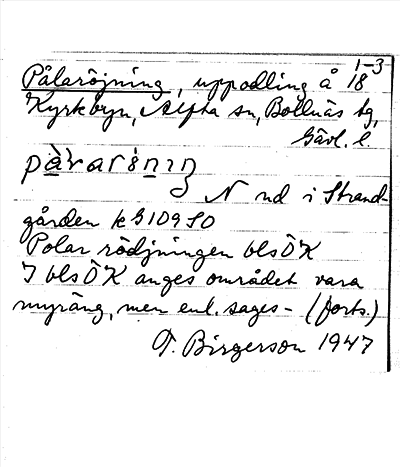 1-3
Pålaröjning, uppodling å 18
Kyrkbyn, Alfta sn, Bollnäs tg,
Gävl. l.
N nd i Strand-
gården kS109SO
Polar rödjningen blsÖK
I blsÖK anges området vara
myräng, men enl. sages- (forts.)
T. Birgerson 1947